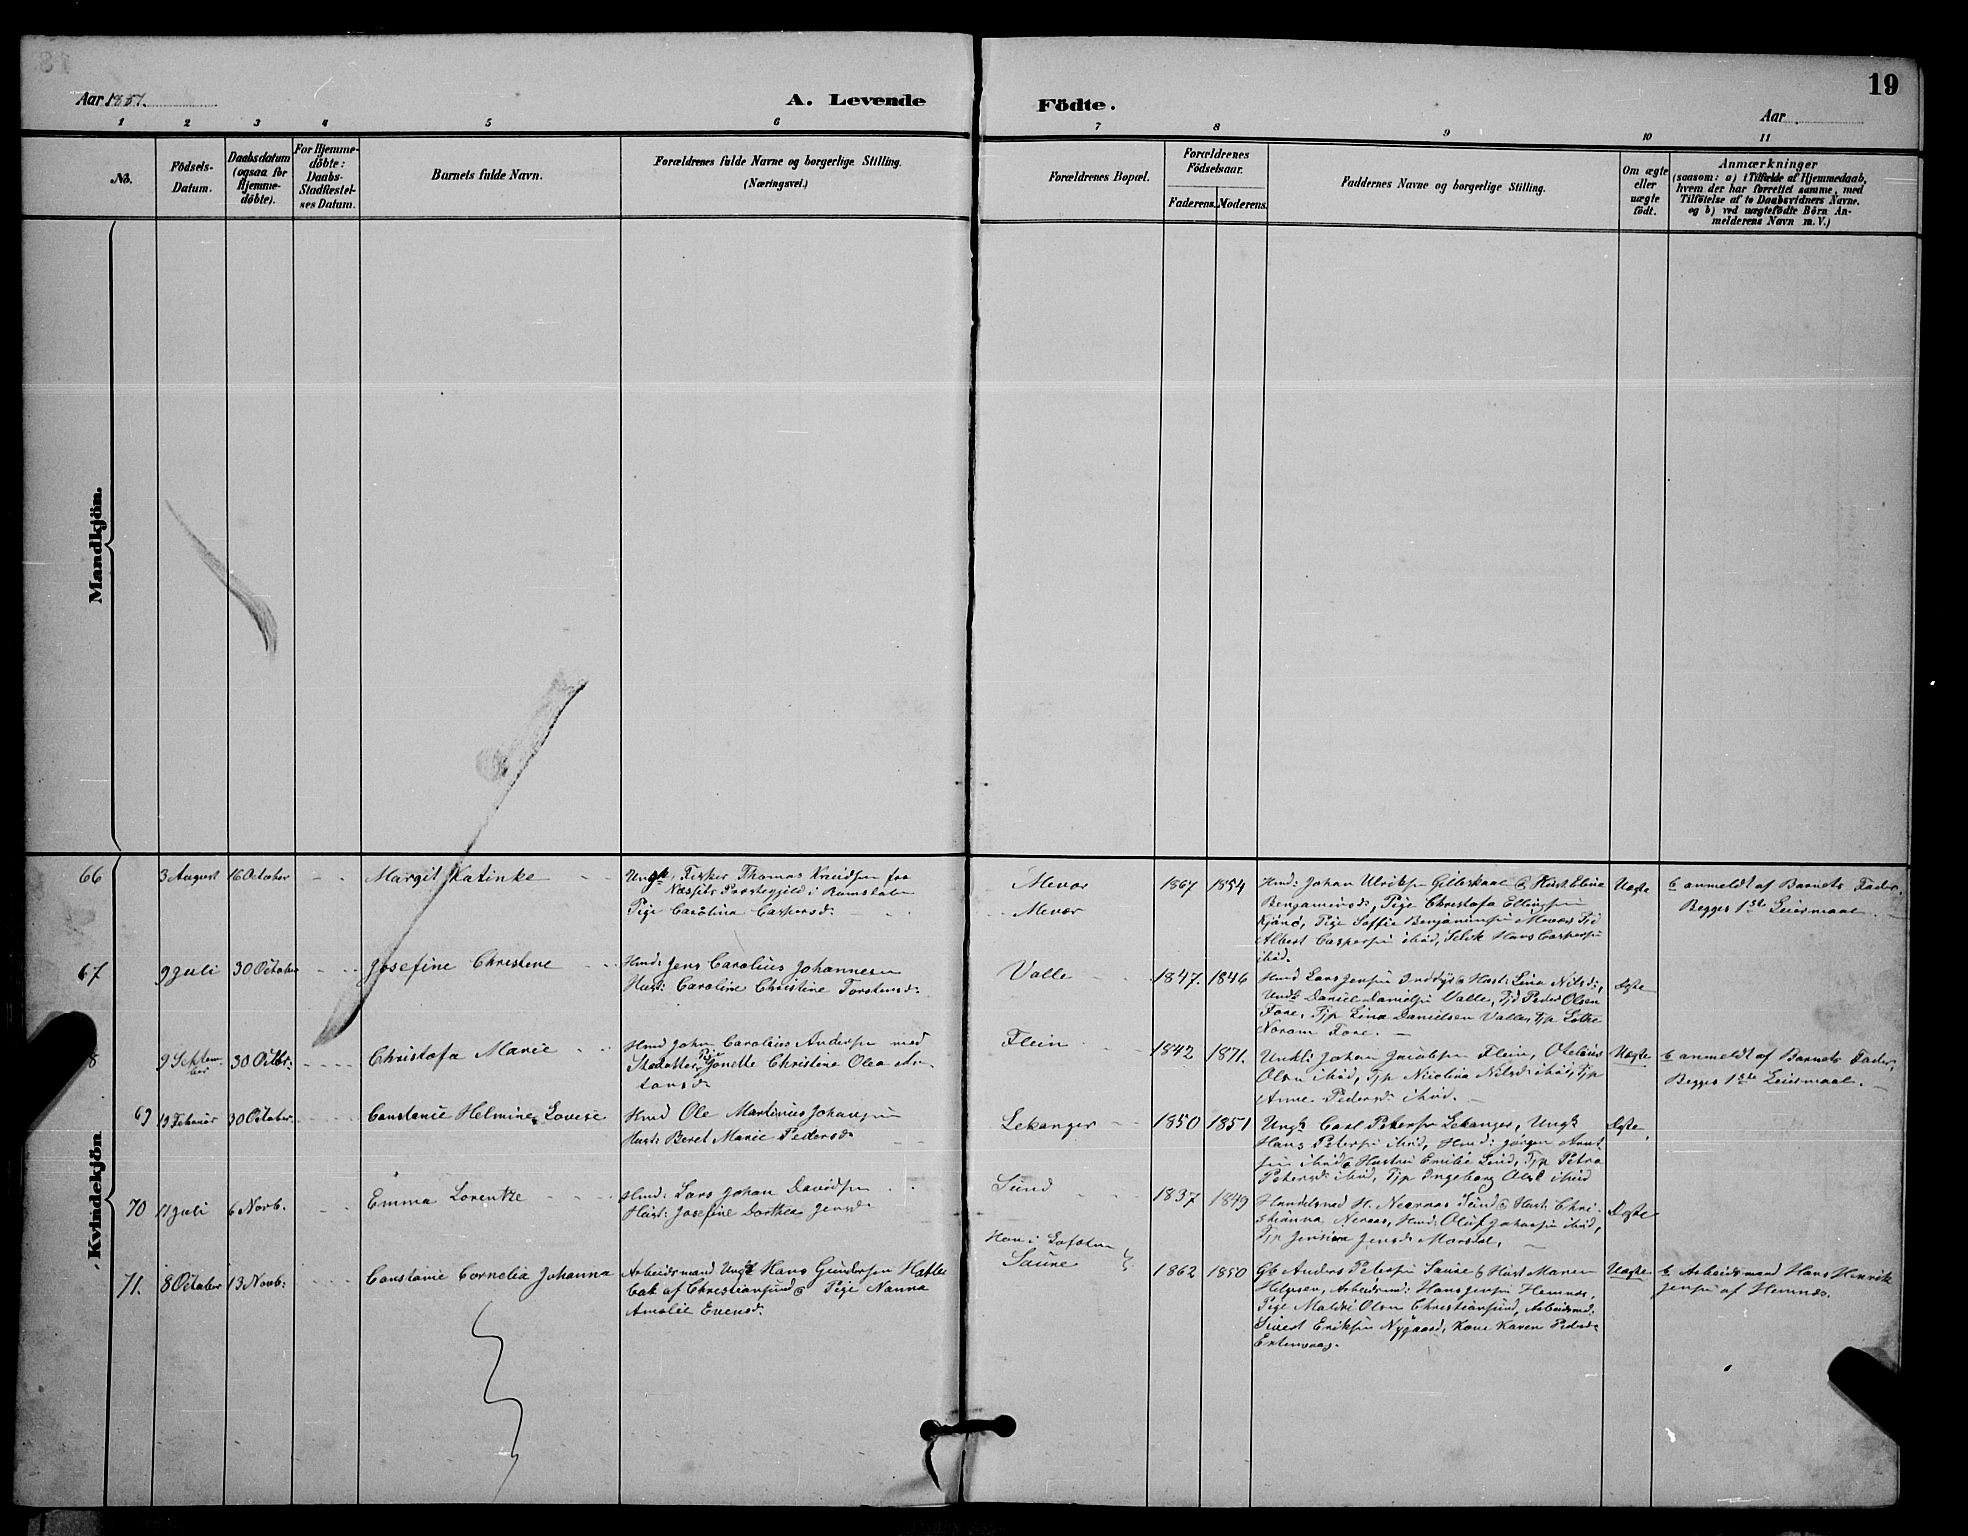 19
Aar 1887.
A. Levende Födte.
Aar
1 2 3 4 5 6 7 8 9 10 11
No.
Födsels-
Datum.
Daabsdatum
(ogsaa for
Hjemme-
døbte).
For Hjemme-
døbte:
Daabs-
Stadfæstel-
ses Datum.
Barnets fulde Navn.
Forældrenes fulde Navne og borgerlige Stilling.
(Næringsvei.)
Forældrenes Bopæl.
Forældrenes
Födselsaar.
Faderens. Moderens.
Faddernes Navne og borgerlige Stilling.
Om ægte
eller
uægte
født.
Anmærkninger
(saasom: a) i Tilfælde af Hjemmedaab,
hvem der har forrettet samme, med
Tilföielse af to Daabsvidners Navne.
og b) ved uægtefödte Börn An-
melderens Navn m. V.)
Mandkjön.
Kvindekjön
66 3 August 16 October Margit Katinke
Ungk. Fisker Thomas Knudsen fra
Næssets Præstegjeld i Romsdalen
Pige Carolina Caspersd.
Mevær
Mevær
1867 1854
Hmd: Johan Ulriksen Gilleskaal & Hust. Eline
Benjaminsd, Pige Christofa Ellingsen
Pige Soffie Benjaminsen Mevær
Albert Caspersen ibid, Hans Caspersen
ibid.
Uægte
b anmeldt af Barnets Fader,
Begges 1ste Leiermaal.
67 9 Juli 30 October Josefine Christene
Hmd: Jens Carolius Johannesen
Hust: Caroline Christine Torstensd:
Valle
1847. 1846
Hmd Lars Jensen & Hust: Lina Nilsd:,
Ungk Daniel Danielsen Valle, Peder Olsen
Fore, Tjp Lina Danielsen Valle, Tjp
Fore.
Ægte
8 9 Septem-
ber 30 Octbr: Christofa Marie
Hmd John Carolius Andersen med
Stedatter Pige Jonette Christine Olea
Flein
1842 1871.
Ungk: Johan Jacobsen Flein,
Olsen ibid, Tjp Nicolina Nilsd ibid, Tjp
Anne Pedersd: ibid.
Uægte
b anmeldt af Barnets Fader,
Begges 1ste Leiermaal.
69 19 Februar 30 October Constanie Helmine Lovise
Hmd Ole Martinius Johansen
Hust: Beret Marie Pedersd
Lekanger
1850 1851
Ungk Carl Petersen Lekanger, Ungk
Hans Petersen ibid, Hmd: Jørgen
ibid & Hustru Emilie Lind, Tjp Petra
Petersd: ibid, Tjp Ingeborg Olsd ibid
Ægte
70 11 Juli 6 Novb. Emma Lorentze
Hmd: Lars Johan Davidsen
Hust: Josefine Dorthea Jensd:
Sund
1837 1849
Handelsmd H. Nernæs Sund & Hust: Chri-
stianna Nernæs, Hmd: Oluf Johnsen ibid,
Tjp Jensine Jensd:
Ægte
71. 8 October 13 Novb: Constanie Cornelia Johanna
Arbeidsmand Ungk Hans Gundersen Hatle
bak af Christiansund & Pige Nanna
Amalie Evensd:
Saure
1862 1850
Gb Anders Petersen Saure & Hust Maren
Arbeidsmd: Hans Jensen Hemnæs,
Pige Olsen Christiansund, Arbeidsmd:
Sivert Eriksen Nygaard, Kone Karen Pedersd
Uægte
b Arbeidsmand Hans Henrik
Jensen af Hemnæs.